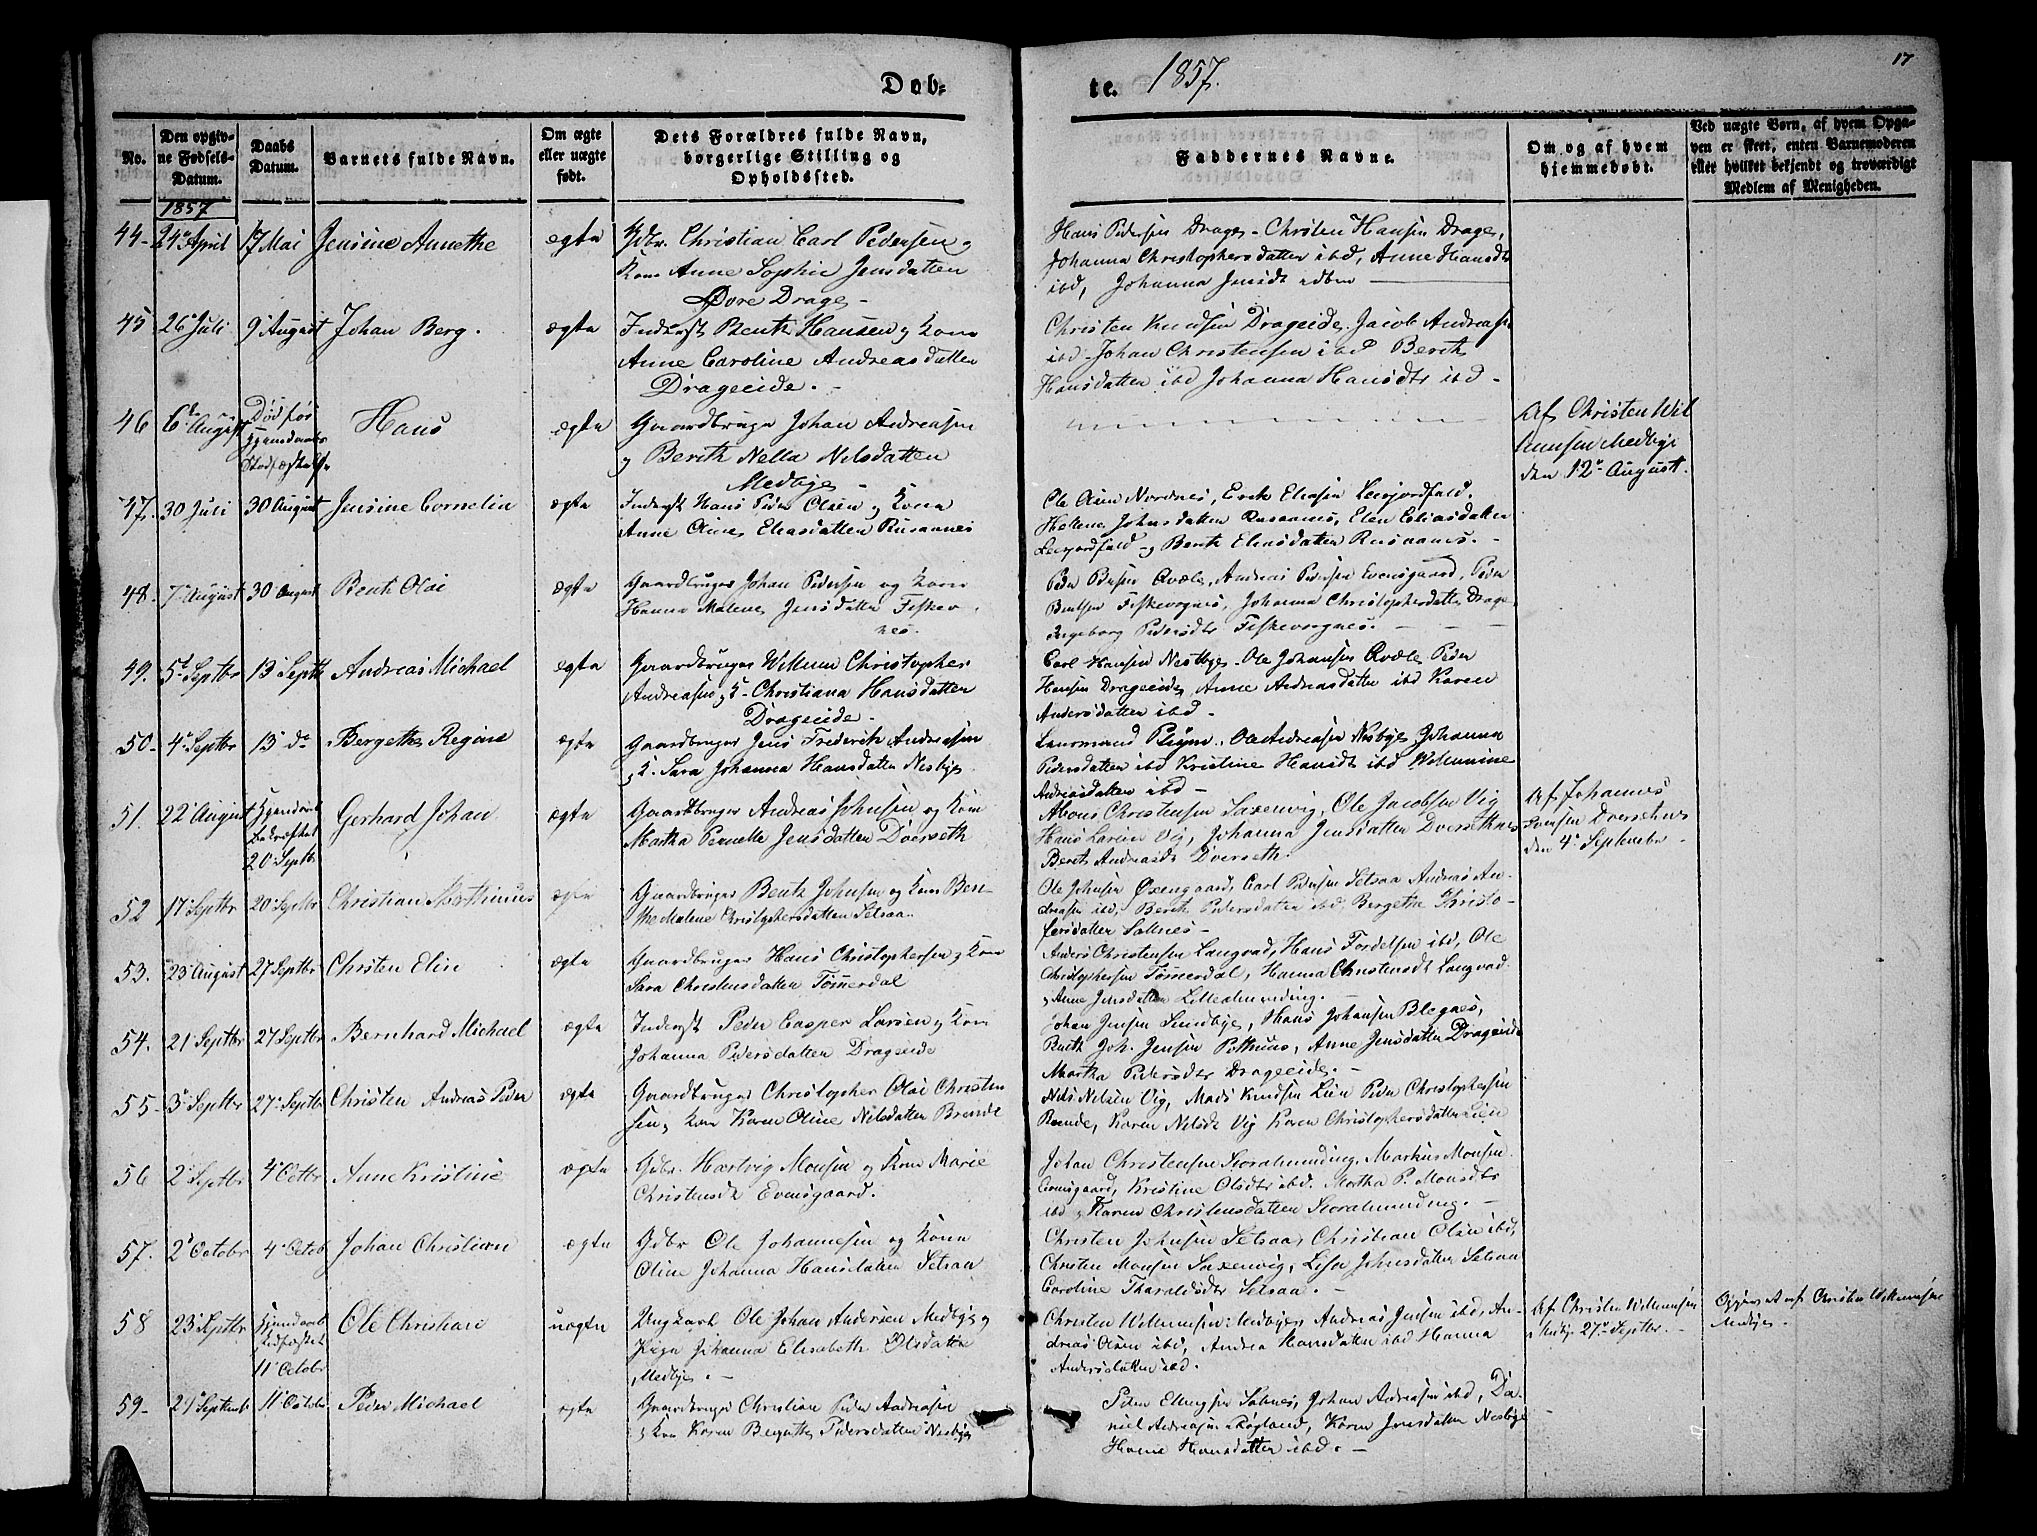 17
Døb-
te. 1857.
No.
Den opgiv-
ne Fødsels-
Datum.
Daabs
Datum.
Barnets fulde Navn.
Om ægte
eller uægte
født.
Dets Forældres fulde Navn,
borgerlige Stilling og
Opholdssted.
Faddernes Navne.
Om og af hvem
hjemmedøbt.
Ved uægte Børn, af hvem Opga-
ven er skeet, enten Barnemoderen
eller hvilket bekjendt og troværdigt
Medlem af Menigheden.
1857
44- 24 April 17 Mai Jensine Annethe ægte Gdbr. Christian Carl Pedersen og
Kone Anne Sophie Jensdatter
Øvre Drage -
Hans Pedersen Drage - Christen Hansen Drage,
Johanna Christophersdatter ibd, Anne Hansdtr
ibd, Johanna Jensdt
45 26 Juli 9 August Johan Berg. ægte Inderst Bentz Hansen og Kone
Anne Caroline Andreasdatter
Drageeide. -
Christen Knudsen Drageeide, Jacob Andreasen
ibd - Johan Christensen ibd Berith
Hansdatter ibd Johanna Hansdtr ibd -
46 6 August Død før
Hjemdaabs
Stadfæstelse
Hans ægte Gaardbruger Johan Andreasen
og Berith Nella Nilsdatter
Medbye -
Af Christen Wil
lumsen Medbye
den 12 August.
47. 30 Juli 30 August Jensine Cornelia ægte Inderst Hans Peder Olsen og Kone
Anne Oline Eliasdatter Rusaanes
Ole Olsen Nordnes, Erik Eliasen Leifjordfald,
Hellene Johnsdatter Rusaanes, Elen Eliasdatter
Leifjordfald og Berith Eliasdatter Rusaanes. -
48. 7 August 30 August Bent Olai ægte Gaardbruger Johan Pedersen og Kone
Hanna Malene Jensdatter Fiskev
nes.
Peder Andreas Pedersen Evensgaard, Peder
Bentsen Johanna Christophersdatter Drage
Ingeborg Pedersdtr
49. 5 Septbr 13 Septb Andreas Michael ægte Gaardbruger Willum Christopher
Andreasen og K. Christiana Hansdatter
Drageeide -
Carl Hansen Nestbye - Ole Johansen Peder
Hansen Drageeide, Anne Andreasdatter ibd Karen
Andersdatter ibd -
50- 4 Septbr 13 do Bergethe Regine ægte Gaardbruger Jens Frederik Andreasen
og K. Sara Johanna Hansdatter Nesbye
Lensmand Ole Andreasen Nesbye, Johanna
Pedersdatter ibd Kristine Hansdt ibd Willumine
Andreasdatter ibd -
51. 22 August Hjemdaab
Bekræftet
20 Septbr
Gerhard Johan ægte Gaardbruger Andreas Johnsen og Kone
Martha Pernelle Jensdatter Dverseth
Mons Christensen Saxenvig, Ole Jacobsen Vig
Hans Larsen Vig, Johanna Jensdatter Dversethnes
Berith Andreasdt Dverseth.
Af Johannes
Svensen Dversethnes
den 4 September -
52 17 Septbr 20 Septbr Christian Mathinus ægte Gaardbruger Bentz Johnsen og Kone Ben-
the Malene Christophersdatter Setsaa.
Ole Johnsen Oxengaard, Carl Setsaa Andreas An-
dreasen ibd, Berith Pedersdatter ibd, Bergethe Christo-
fersdatter Saltnes -
53. 23 August 27 Septbr Christen Elin ægte Gaardbruger Hans Christophersen og Kone
Sara Christensdatter Tømmerdal
Anders Christensen Langvad, Hans Fordelsen ibd, Ole
Christophersen Tømmerdal, Hanna Christensdt Langvad
og Anne Jensdatter Lillealmending. -
54. 21 Septbr 27 Septbr Bernhard Michael ægte Inderst Peder Casper Larsen og Kone
Johanna Pedersdatter Drageeide
Johan Jensen Sundbye, Hans Johansen
Joh. Jensen Anne Jensdatter Drageeide
Martha Pedersdtr Drageeide. -
55- 3 Septbr 27 Septbr Christen Andreas Peder ægte Gaardbruger Christopher Olai Christen
sen, Kone Karen Oline Nilsdatter Brende
Nils Nilsen Vig, Mads Knudsen Lien Peder Christophersen
Karen Nilsdt Vig Karen Christophersdatter Lien
56 2 Septbr 4 Octbr Anne Kristine ægte Gdbr. Hartvig Monsen og Kone Marie
Christensdt Evensgaard.
Johan Christensen Storalmending, Markus Monsen
Evensgaard, Kristine Olsdtr ibd. Martha P. Monsdtr
ibd og Karen Christensdatter Storalmending. -
57. 2 Octobr 4 Octob Johan Christian ægte Gdbr Ole Johannesen og Kone
Oline Johanna Hansdatter Setsaa
Christen Johnsen Setsaa, Christian Olsen ibd,
Christen Monsen Saxenvig, Lisa Johnsdatter Setsaa
Caroline Tharaldsdtr Setsaa. -
58 23 Septbr Hjemdaab
Stadfæstet
11 Octobr
Ole Christian uægte Ungkarl Ole Johan Andersen Medbye og
Pige Johanna Elisabeth Olsdatter
Medbye. -
Christen Willumsen Medbye, Andreas Jensen ibd, An-
dreas Olsen ibd, Andrea Hansdatter ibd Hanna
Andersdatter ibd.
Af Christen Willumsen
27 Septbr. -
Opgivet af Christen Willumsen
Medbye -
59- 29 Septemb 11 Octobr Peder Michael ægte Gaardbruger Christian Peder Andreasen
og Kone Karen Bergithe Pedersdatter Nesbye
Peder Ellingsen Saltnes, Johan Andreasen ibd, Da-
niel Andreasen Røgland, Karen Jensdatter Nesbye
Hansdatter ibd. -